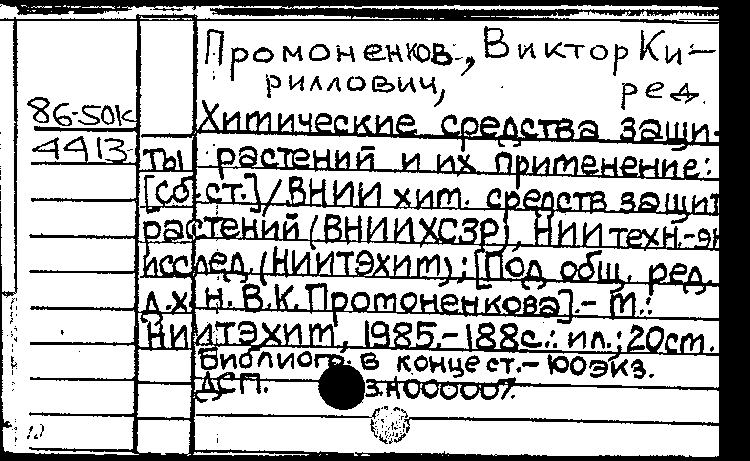 Промоненков, Виктор Ки-
риллович, ред.
86-50к
4413
Химические средства защи-
ты растений и их применение:
[Сб. ст.] / ВНИИ хим. средств защит
растений (ВНИИХСЗР), НИИ техн.-эк
исслед. (НИИТЭхим); [Под общ. ред.
д.х.н. В.К. Промоненкова].- М.:
НИИТЭхим, 1985.-188с.: ил.; 20см.
Библиогр. в конце ст.- 100экз.
ДСП.